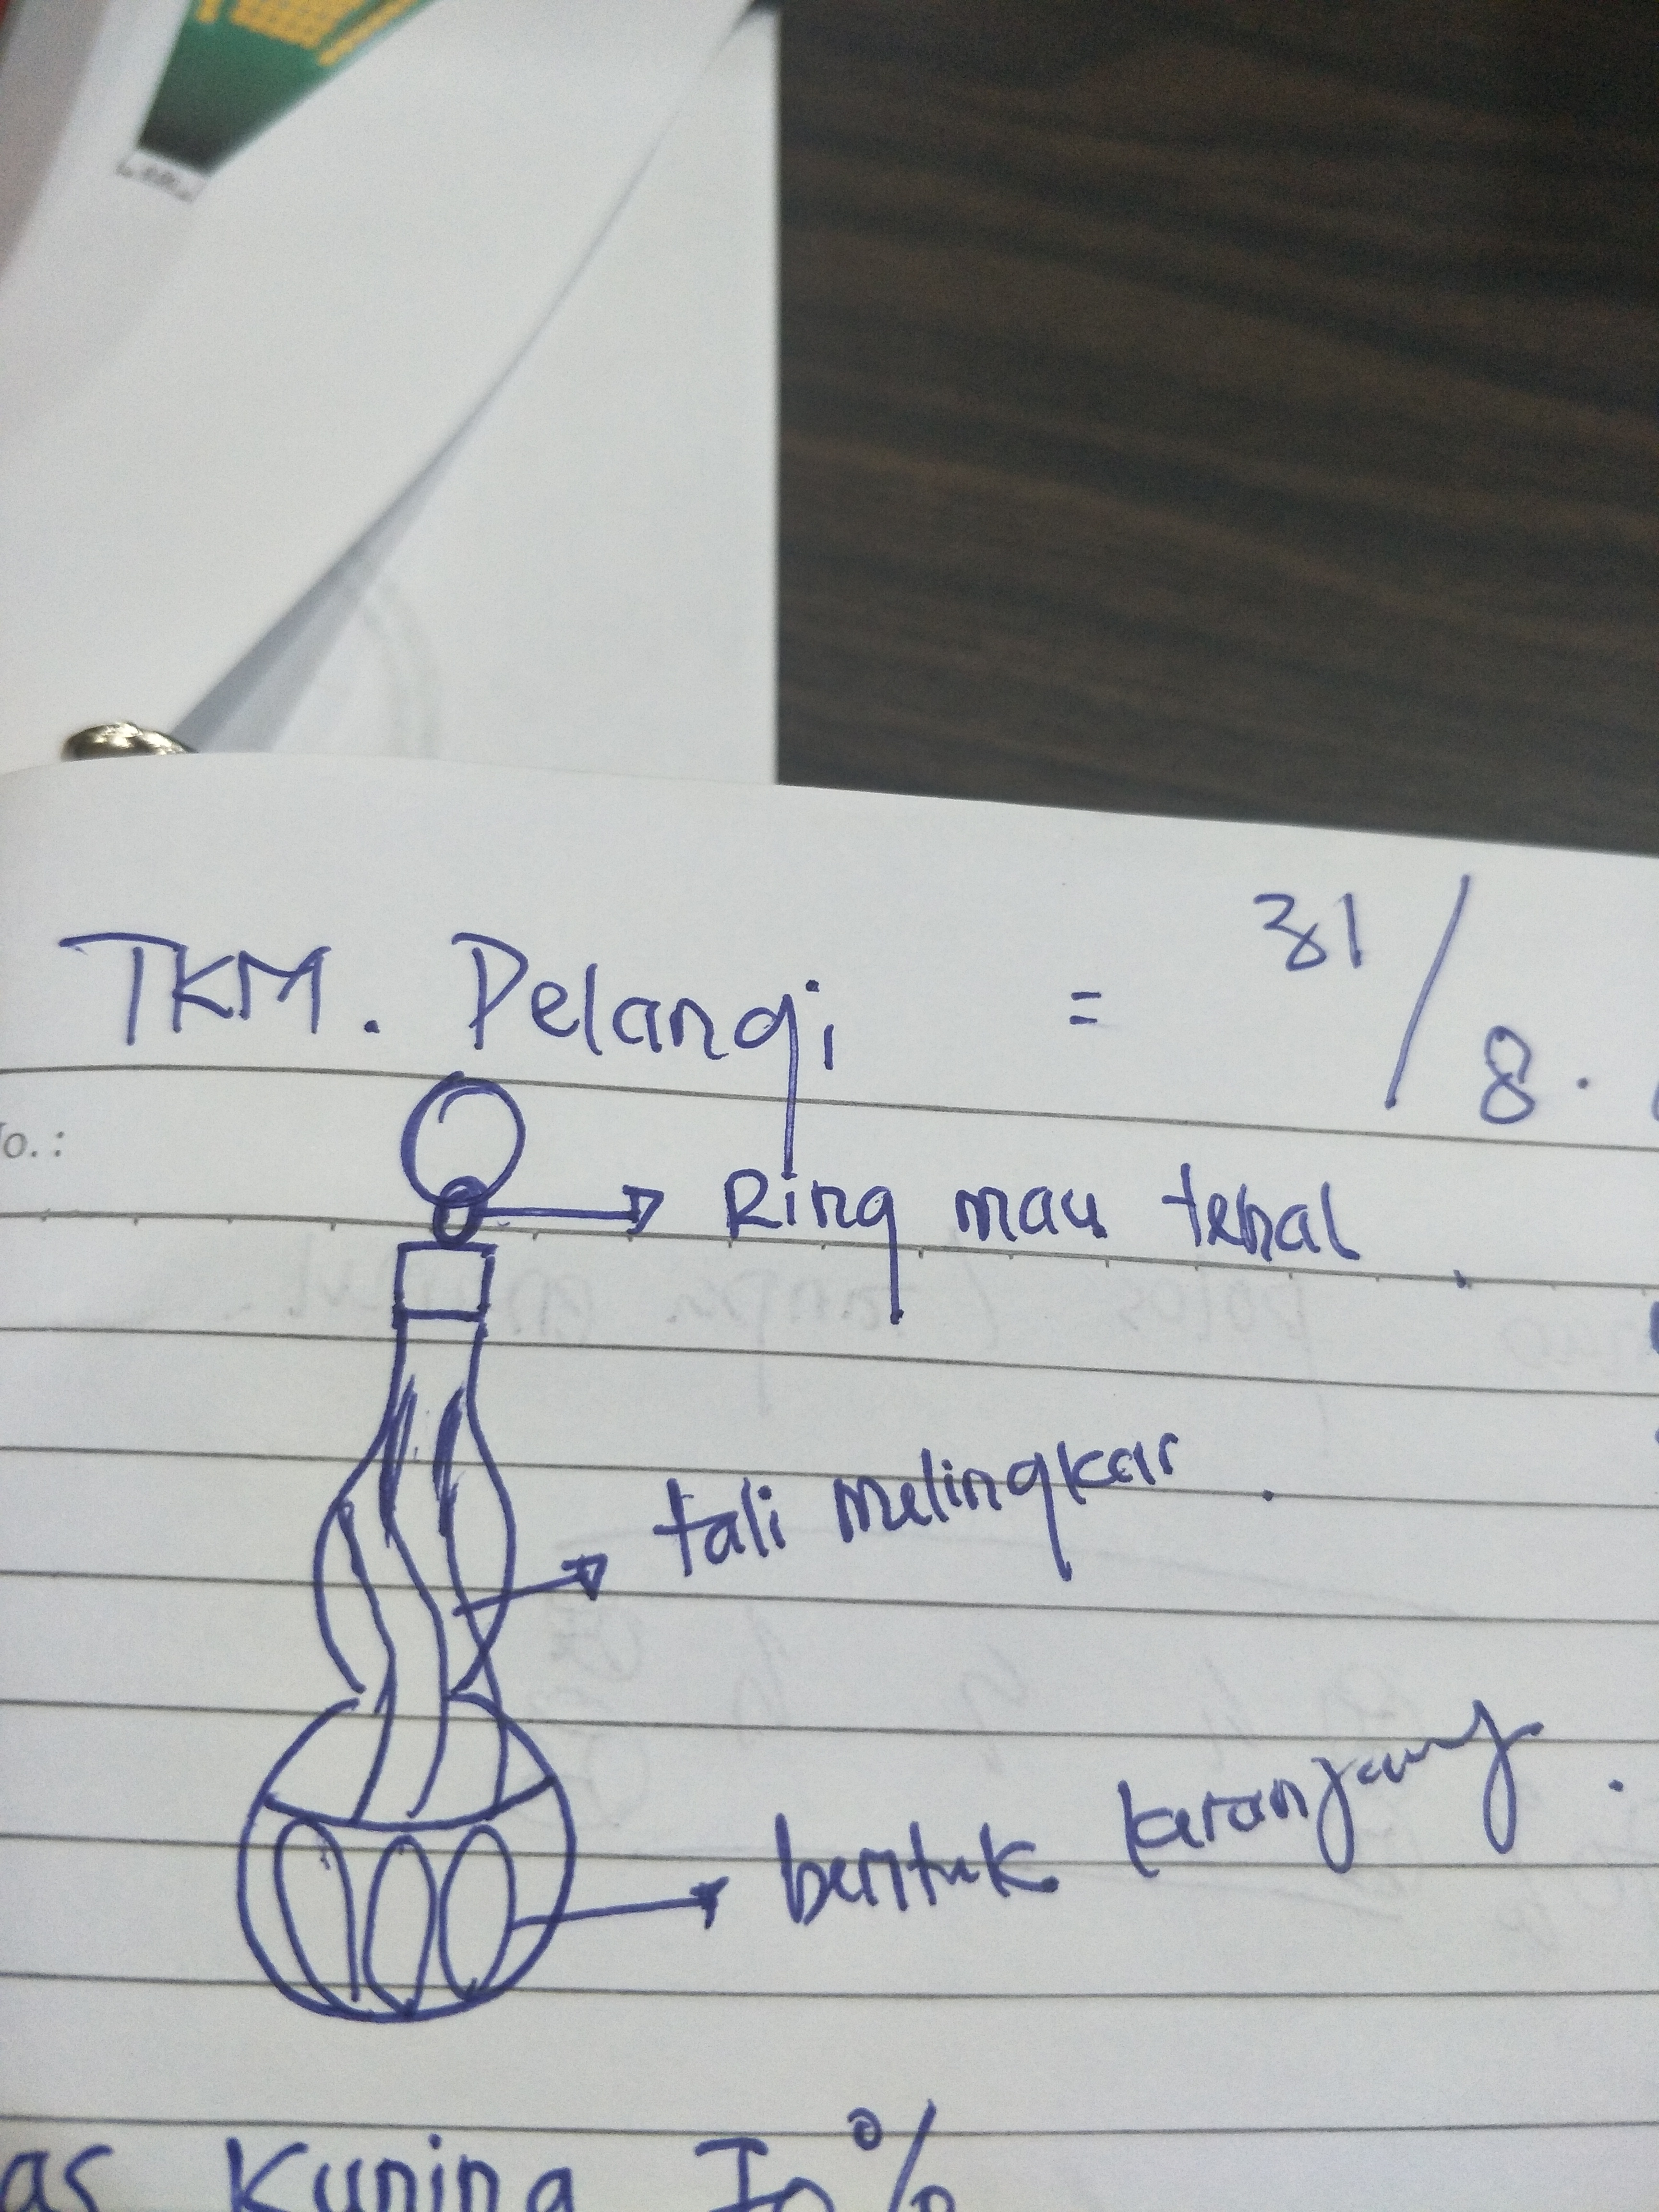 TKM. Pelangi = 31/8.
o. :
Ring mau tebal
tali melingkar.
bentuk keranjang.
as Kuning 70%